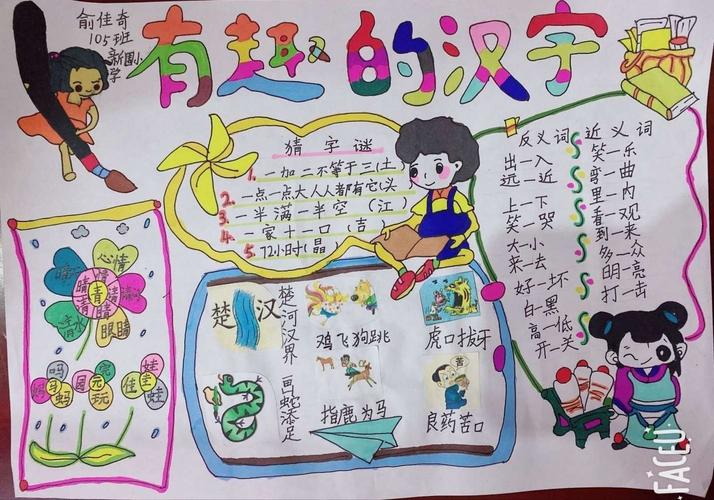 俞佳奇
105班
新图小
学
有趣的汉字
猜字谜
1. 一加二不等于三(土)
2. 一点一大人人都有它(头
3. 一半满一半空(江)
4. 一家十一口(吉
5. 72小时(晶
反义词
出—入
远—近
上—下
笑—哭
大—小
来—去
好—坏
白—黑
高—低
开—关
近义词
笑—乐
弯—曲
里—内
看—观
到—来
多—众
明—亮
打—击
心情
晴
情
睛
青
清
清水
眼睛
吗
蚂
园
元
完
玩
佳
圭
娃
蛙
楚 汉
楚河汉界
画蛇添足
鸡飞狗跳
虎口拔牙
指鹿为马
良药苦口
FACEU